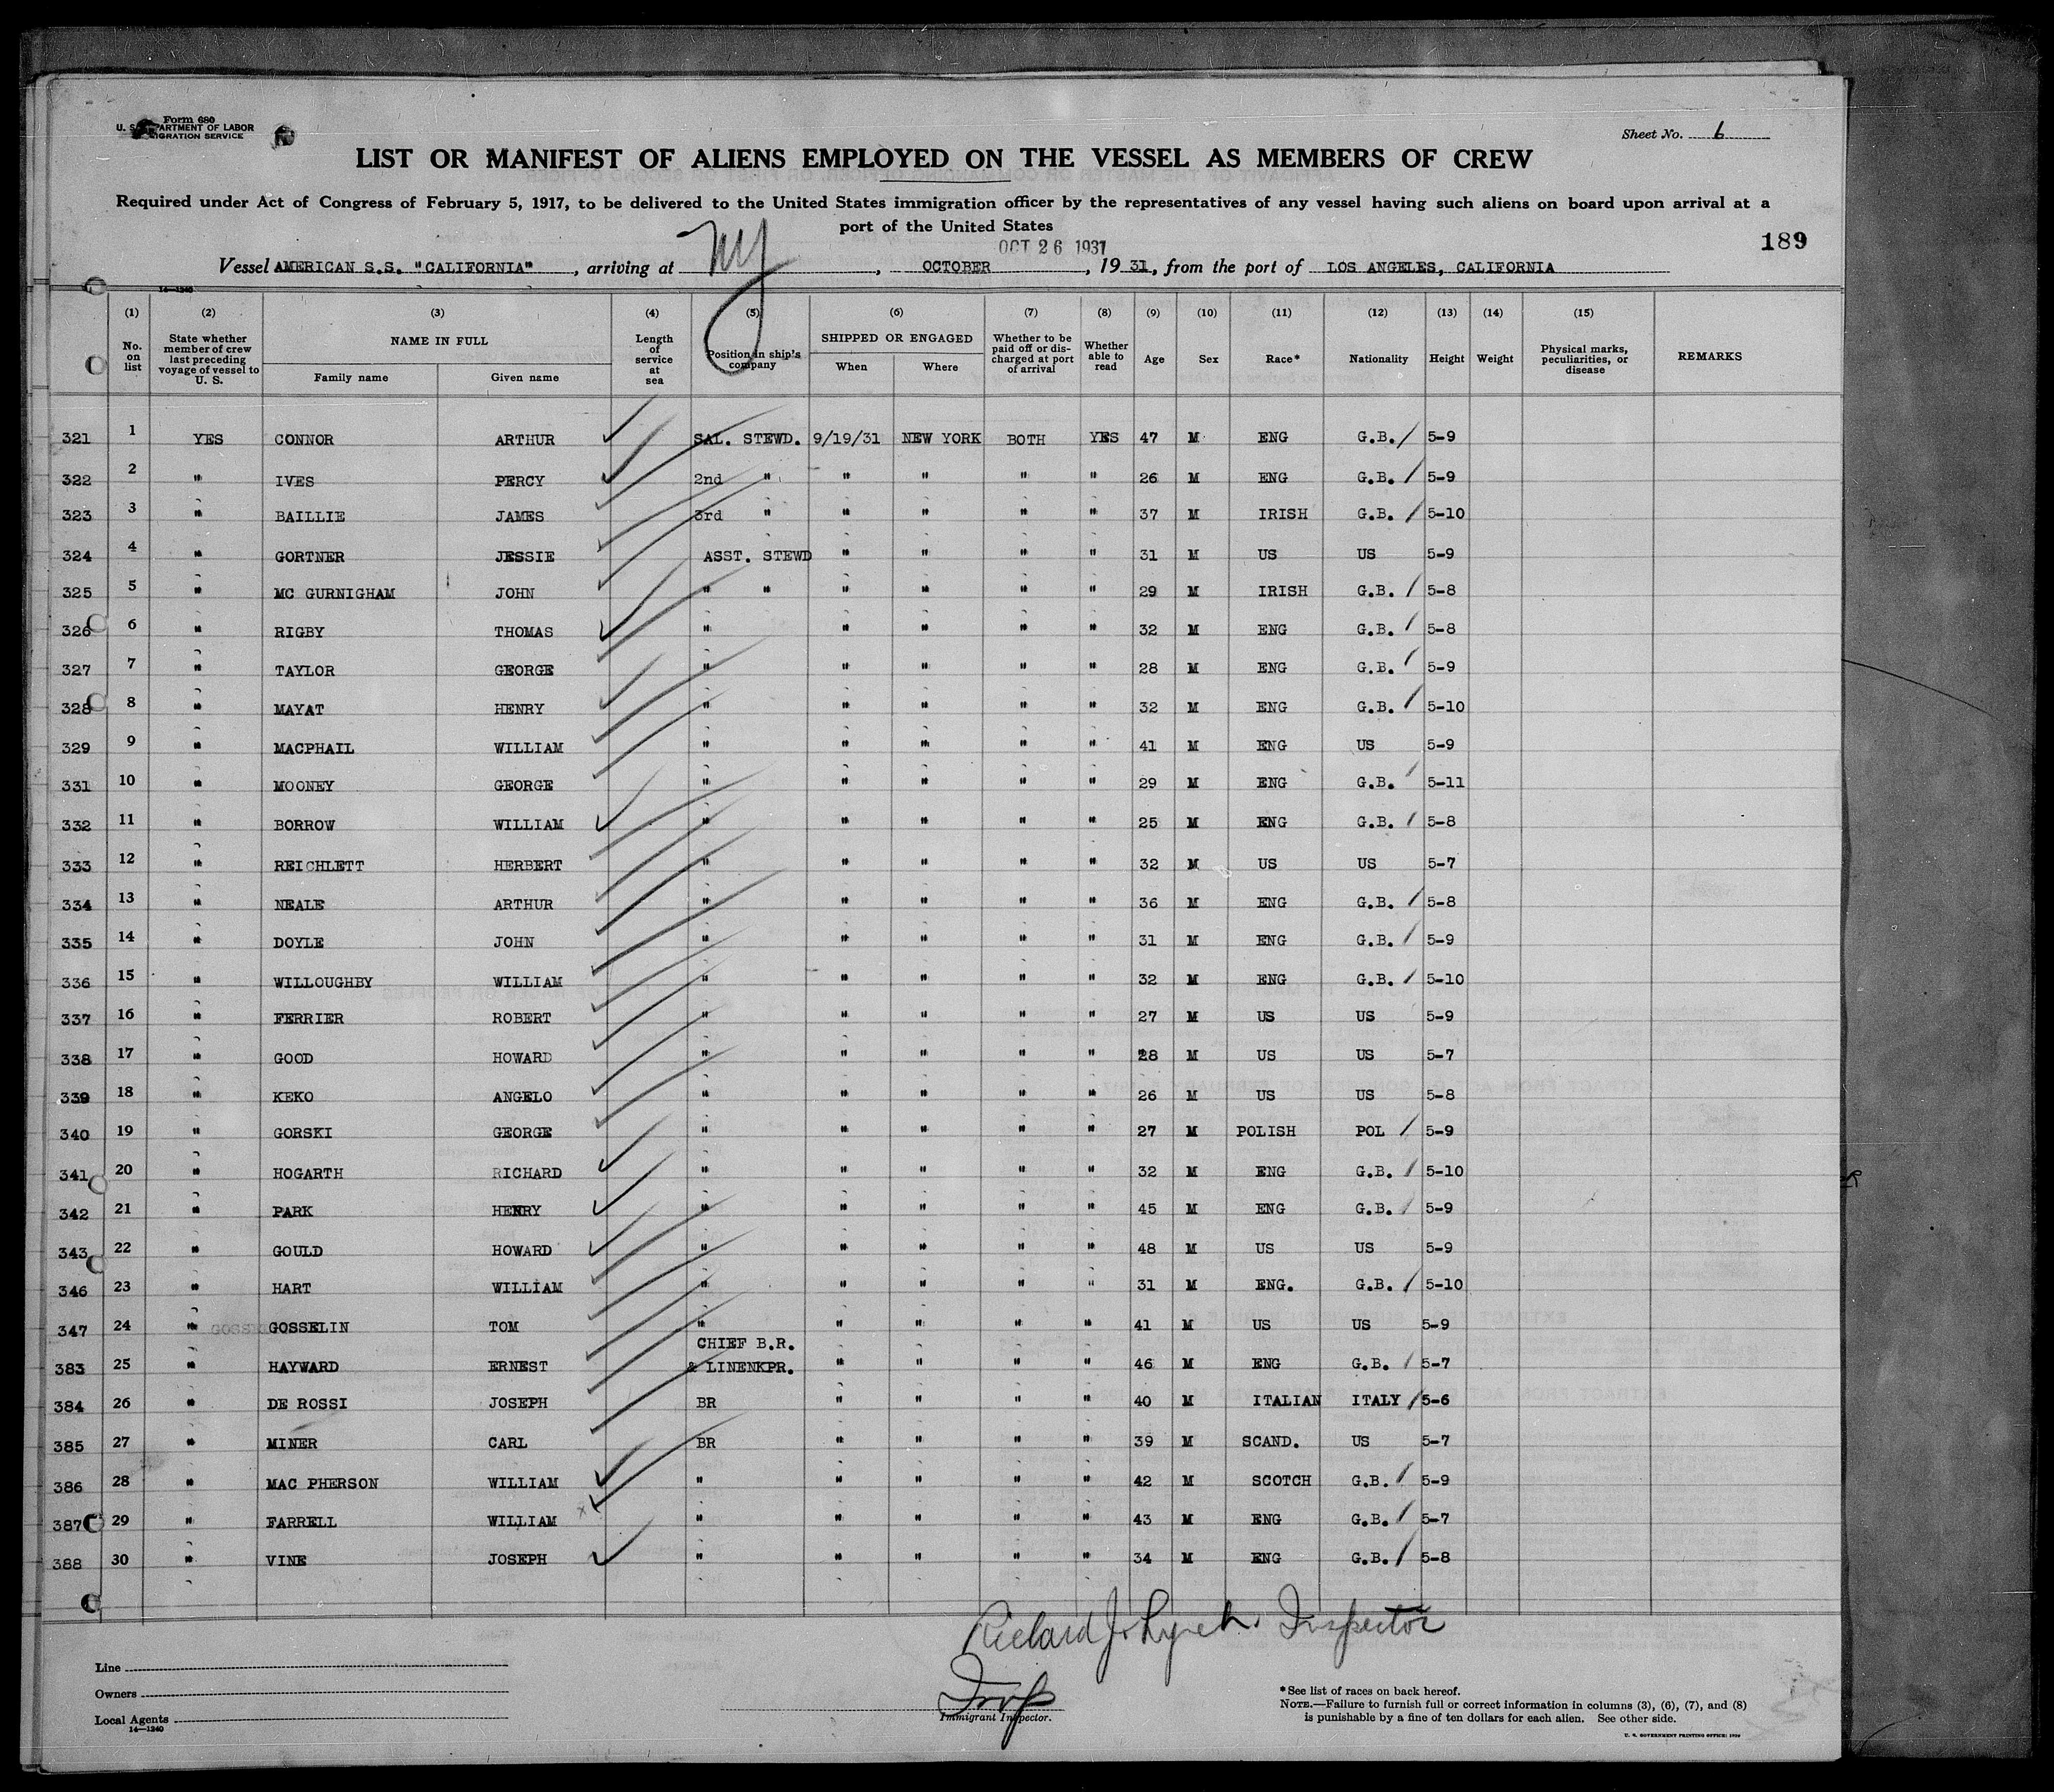 Form 680
U. S. DEPARTMENT OF LABOR
IMMIGRATION SERVICE
Sheet No. 6
LIST OR MANIFEST OF ALIENS EMPLOYED ON THE VESSEL AS MEMBERS OF CREW
Required under Act of Congress of February 5, 1917, to be delivered to the United States immigration officer by the representatives of any vessel having such aliens on board upon arrival at a
port of the United States
OCT 26 1931
189
Vessel AMERICAN S.S. "CALIFORNIA", arriving at NY, OCTOBER, 1931, from the port of LOS ANGELES, CALIFORNIA
14—1240
(1) (2) (3) (4) (5) (6) (7) (8) (9) (10) (11) (12) (13) (14) (15)
No. on list State whether member of crew last preceding voyage of vessel to U. S. NAME IN FULL Family name Given name Length of service at sea Position in ship's company SHIPPED OR ENGAGED When Where Whether to be paid off or discharged at port of arrival Whether able to read Age Sex Race* Nationality Height Weight Physical marks, peculiarities, or disease REMARKS
321 1 YES CONNOR ARTHUR SAL. STEWD. 9/19/31 NEW YORK BOTH YES 47 M ENG G.B. 5-9
322 2 " IVES PERCY 2nd " " " " " 26 M ENG G.B. 5-9
323 3 " BAILLIE JAMES 3rd " " " " " 37 M IRISH G.B. 5-10
324 4 " GORTNER JESSIE ASST. STEWD " " " " 31 M US US 5-9
325 5 " MC GURNIGHAM JOHN " " " " " " 29 M IRISH G.B. 5-8
326 6 " RIGBY THOMAS " " " " " 32 M ENG G.B. 5-8
327 7 " TAYLOR GEORGE " " " " " 28 M ENG G.B. 5-9
328 8 " MAYAT HENRY " " " " " 32 M ENG G.B. 5-10
329 9 " MACPHAIL WILLIAM " " " " " 41 M ENG US 5-9
331 10 " MOONEY GEORGE " " " " " 29 M ENG G.B. 5-11
332 11 " BORROW WILLIAM " " " " " 25 M ENG G.B. 5-8
333 12 " REICHLETT HERBERT " " " " " 32 M US US 5-7
334 13 " NEALE ARTHUR " " " " " 36 M ENG G.B. 5-8
335 14 " DOYLE JOHN " " " " " 31 M ENG G.B. 5-9
336 15 " WILLOUGHBY WILLIAM " " " " " 32 M ENG G.B. 5-10
337 16 " FERRIER ROBERT " " " " " 27 M US US 5-9
338 17 " GOOD HOWARD " " " " " 28 M US US 5-7
339 18 " KEKO ANGELO " " " " " 26 M US US 5-8
340 19 " GORSKI GEORGE " " " " " 27 M POLISH POL 5-9
341 20 " HOGARTH RICHARD " " " " " 32 M ENG G.B. 5-10
342 21 " PARK HENRY " " " " " 45 M ENG G.B. 5-9
343 22 " GOULD HOWARD " " " " " 48 M US US 5-9
346 23 " HART WILLIAM " " " " " 31 M ENG. G.B. 5-10
347 24 " GOSSELIN TOM " " " " " 41 M US US 5-9
CHIEF B.R.
383 25 " HAYWARD ERNEST & LINENKPR. " " " " 46 M ENG G.B. 5-7
384 26 " DE ROSSI JOSEPH BR " " " " 40 M ITALIAN ITALY 5-6
385 27 " MINER CARL BR " " " " 39 M SCAND. US 5-7
386 28 " MAC PHERSON WILLIAM " " " " " 42 M SCOTCH G.B. 5-9
387 29 " FARRELL WILLIAM " " " " " 43 M ENG G.B. 5-7
388 30 " VINE JOSEPH " " " " " 34 M ENG G.B. 5-8
Richard J. Lynch. Inspector
Line
Owners
Local Agents
14—1240
Immigrant Inspector.
*See list of races on back hereof.
NOTE.—Failure to furnish full or correct information in columns (3), (6), (7), and (8)
is punishable by a fine of ten dollars for each alien. See other side.
U. S. GOVERNMENT PRINTING OFFICE: 1930